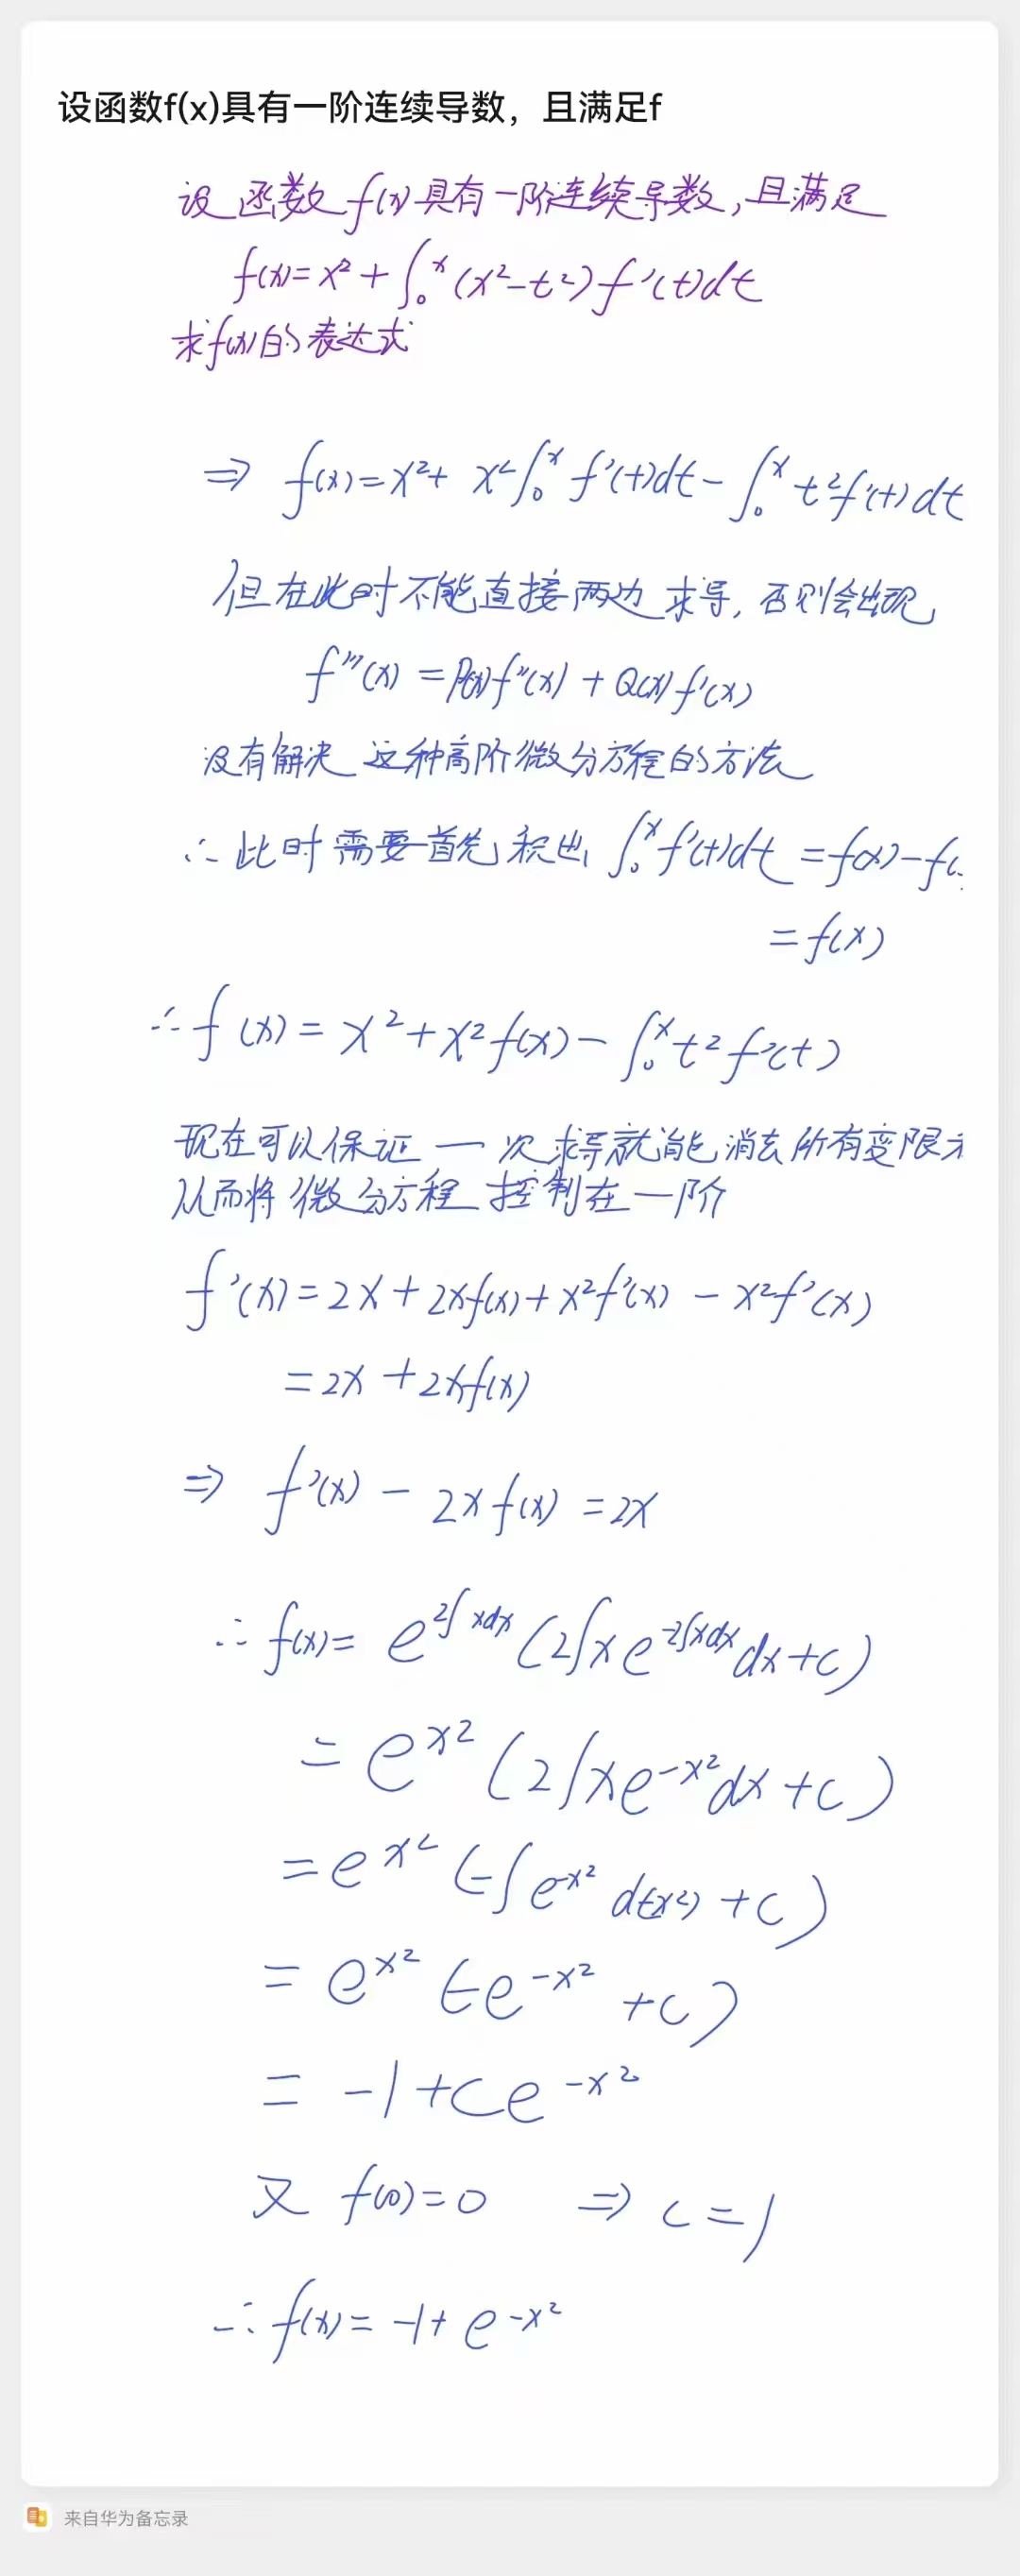 设函数f(x)具有一阶连续导数，且满足f
设函数f(x)具有一阶连续导数,且满足
f(x)=x²+∫₀ˣ(x²-t²)f'(t)dt
求f(x)的表达式
⇒ f(x)=x²+ x²∫₀ˣ f'(t)dt-∫₀ˣ t²f'(t)dt
但在此时不能直接两边求导,否则会出现
f'''(x) =P(x)f''(x)+Q(x)f'(x)
没有解决这种高阶微分方程的方法
∴此时需要首先积出 ∫₀ˣf'(t)dt=f(x)-f(
=f(x)
∴f(x)=x²+x²f(x)-∫₀ˣt²f'(t)
现在可以保证一次求导就能消去所有变限
从而将微分方程控制在一阶
f'(x)=2x+2xf(x)+x²f'(x)-x²f'(x)
=2x+2xf(x)
⇒ f'(x)-2xf(x)=2x
∴f(x)= e^{2∫xdx}(2∫xe^{-2∫xdx}dx+c)
= e^{x²}(2∫xe^{-x²}dx+c)
=e^{x²}(-∫e^{-x²}d(-x²)+c)
= e^{x²}(-e^{-x²}+c)
= -1+ce^{-x²}
又 f(0)=0 ⇒ c=1
∴f(x)=-1+e^{-x²}
来自华为备忘录